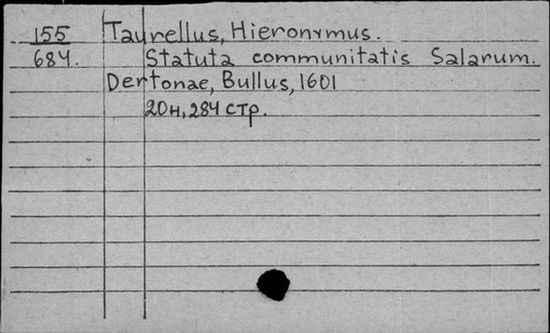 155 Taurellus, Hieronymus.
684. Statuta communitatis Salarum.
Dertonae, Bullus, 1601
20н, 284 стр.